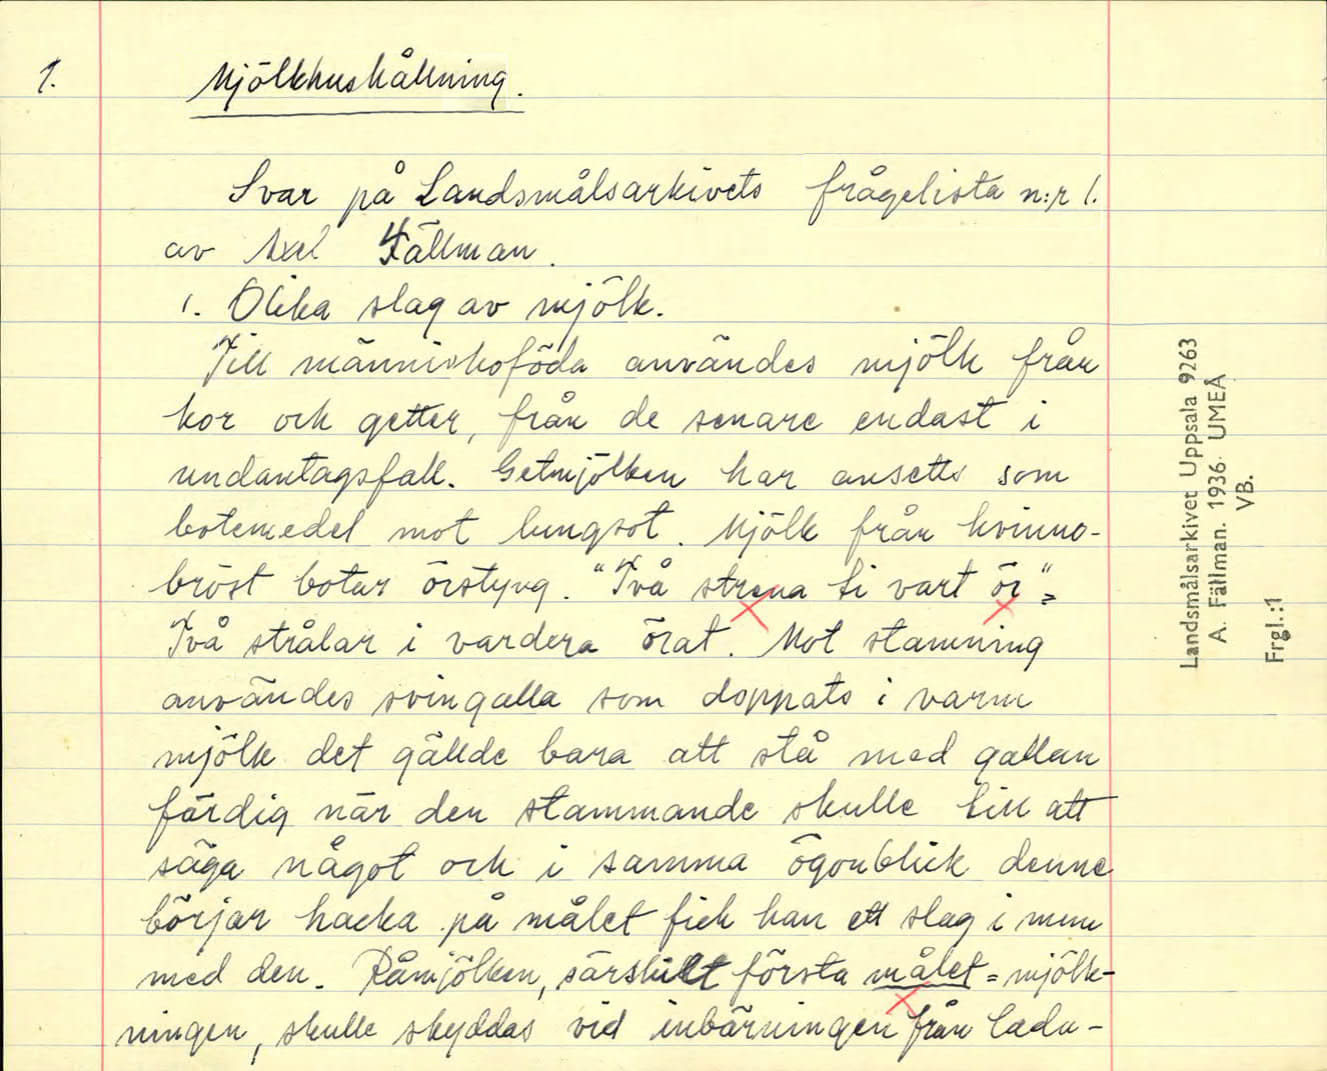 1.
Mjölkhushållning.
Svar på Landsmålsarkivets frågelista n:r 1.
av Axel Fällman.
1. Olika slag av mjölk.
Till människoföda användes mjölk från
kor och getter, från de senare endast i
undantagsfall. Getmjölken har ansetts som
botemedel mot lungsot. Mjölk från kvinno-
bröst botar örstyng. "Två strena ti vart ör" =
Två strålar i vardera örat. Mot stamning
användes svingalla som doppats i varm
mjölk det gällde bara att stå med gallan
färdig när den stammande skulle till att
säga något och i samma ögonblick denne
börjar hacka på målet fick han ett slag i mun
med den. Råmjölken, särskilt första målet = mjölk-
ningen, skulle skyddas vid inbärningen från ladu-
Landsmålsarkivet Uppsala 9263
A. Fällman. 1936. UMEÅ
VB.
Frgl.:1